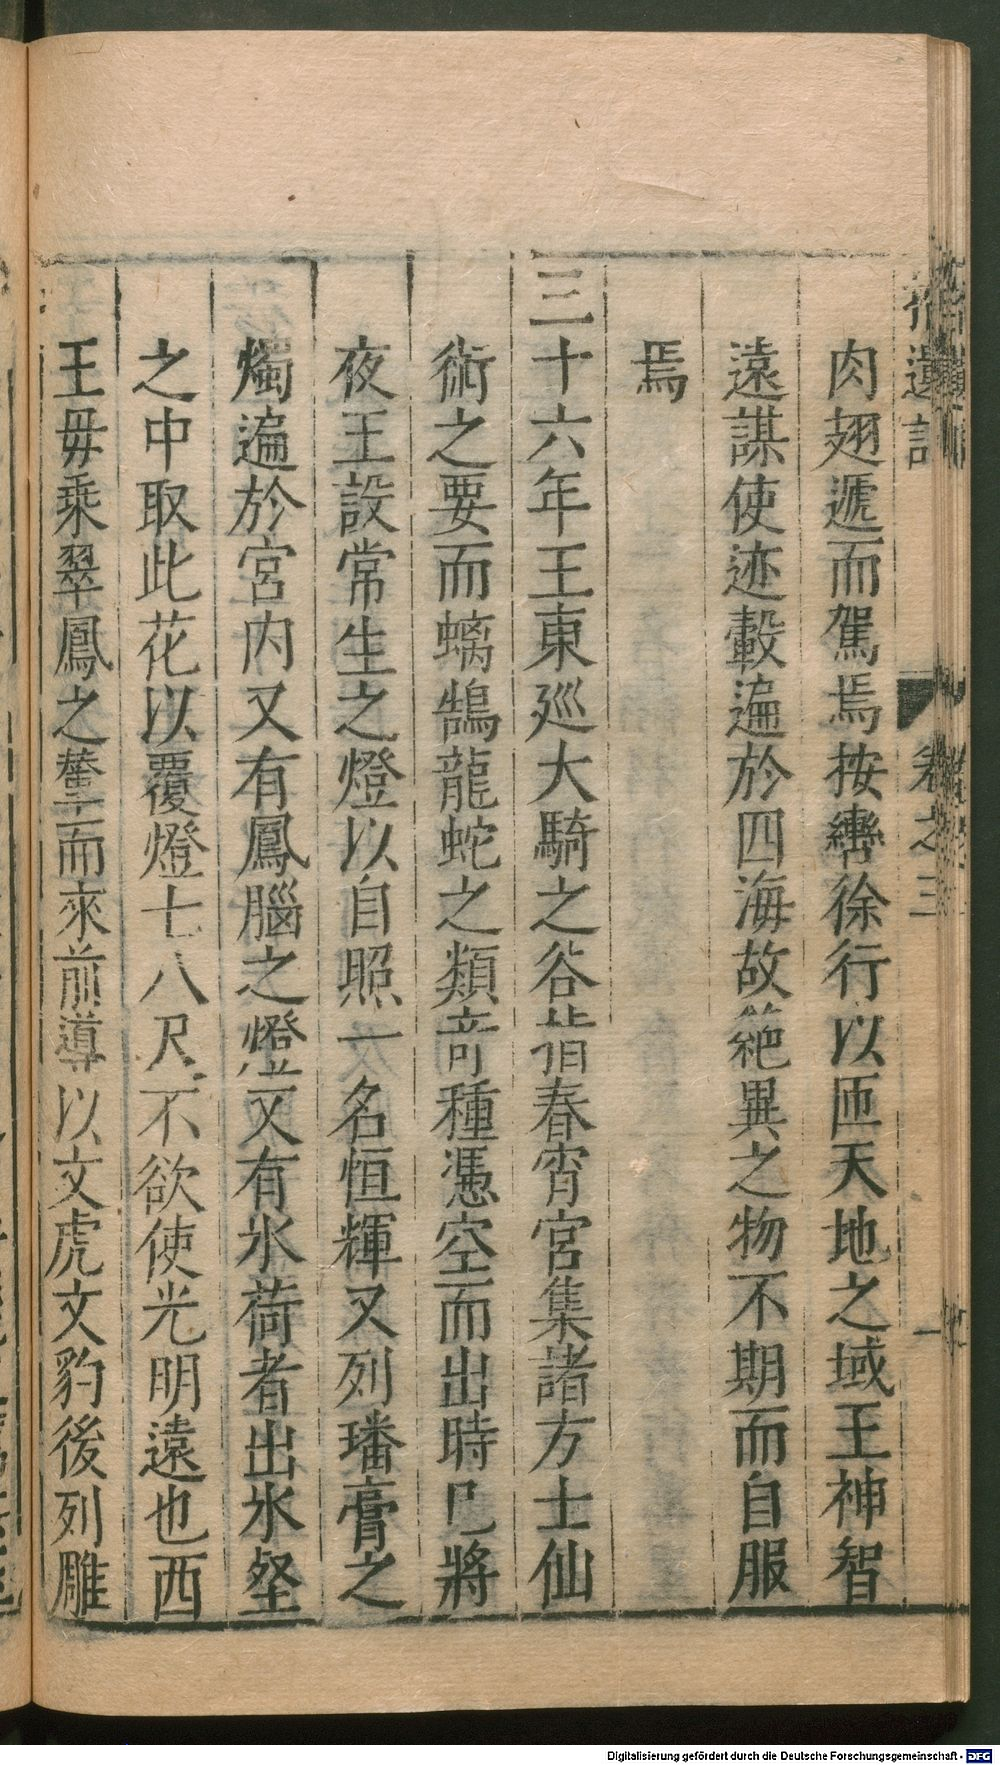 拾遺記 卷之三 一
肉翅遞而駕焉按轡徐行以匝天地之域王神智
遠謀使迹轂遍於四海故絕異之物不期而自服
焉
三十六年王東廵大騎之谷指春宵宮集諸方士仙
術之要而螭鵠龍蛇之類奇種憑空而出時已將
夜王設常生之燈以自照一名恒輝又列璠膏之
燭遍於宮内又有鳳腦之燈又有氷荷者出氷壑
之中取此花以覆燈七八尺不欲使光明遠也西
王母乘翠鳳之輦而來前導以文虎文豹後列雕
Digitalisierung gefördert durch die Deutsche Forschungsgemeinschaft - DFG